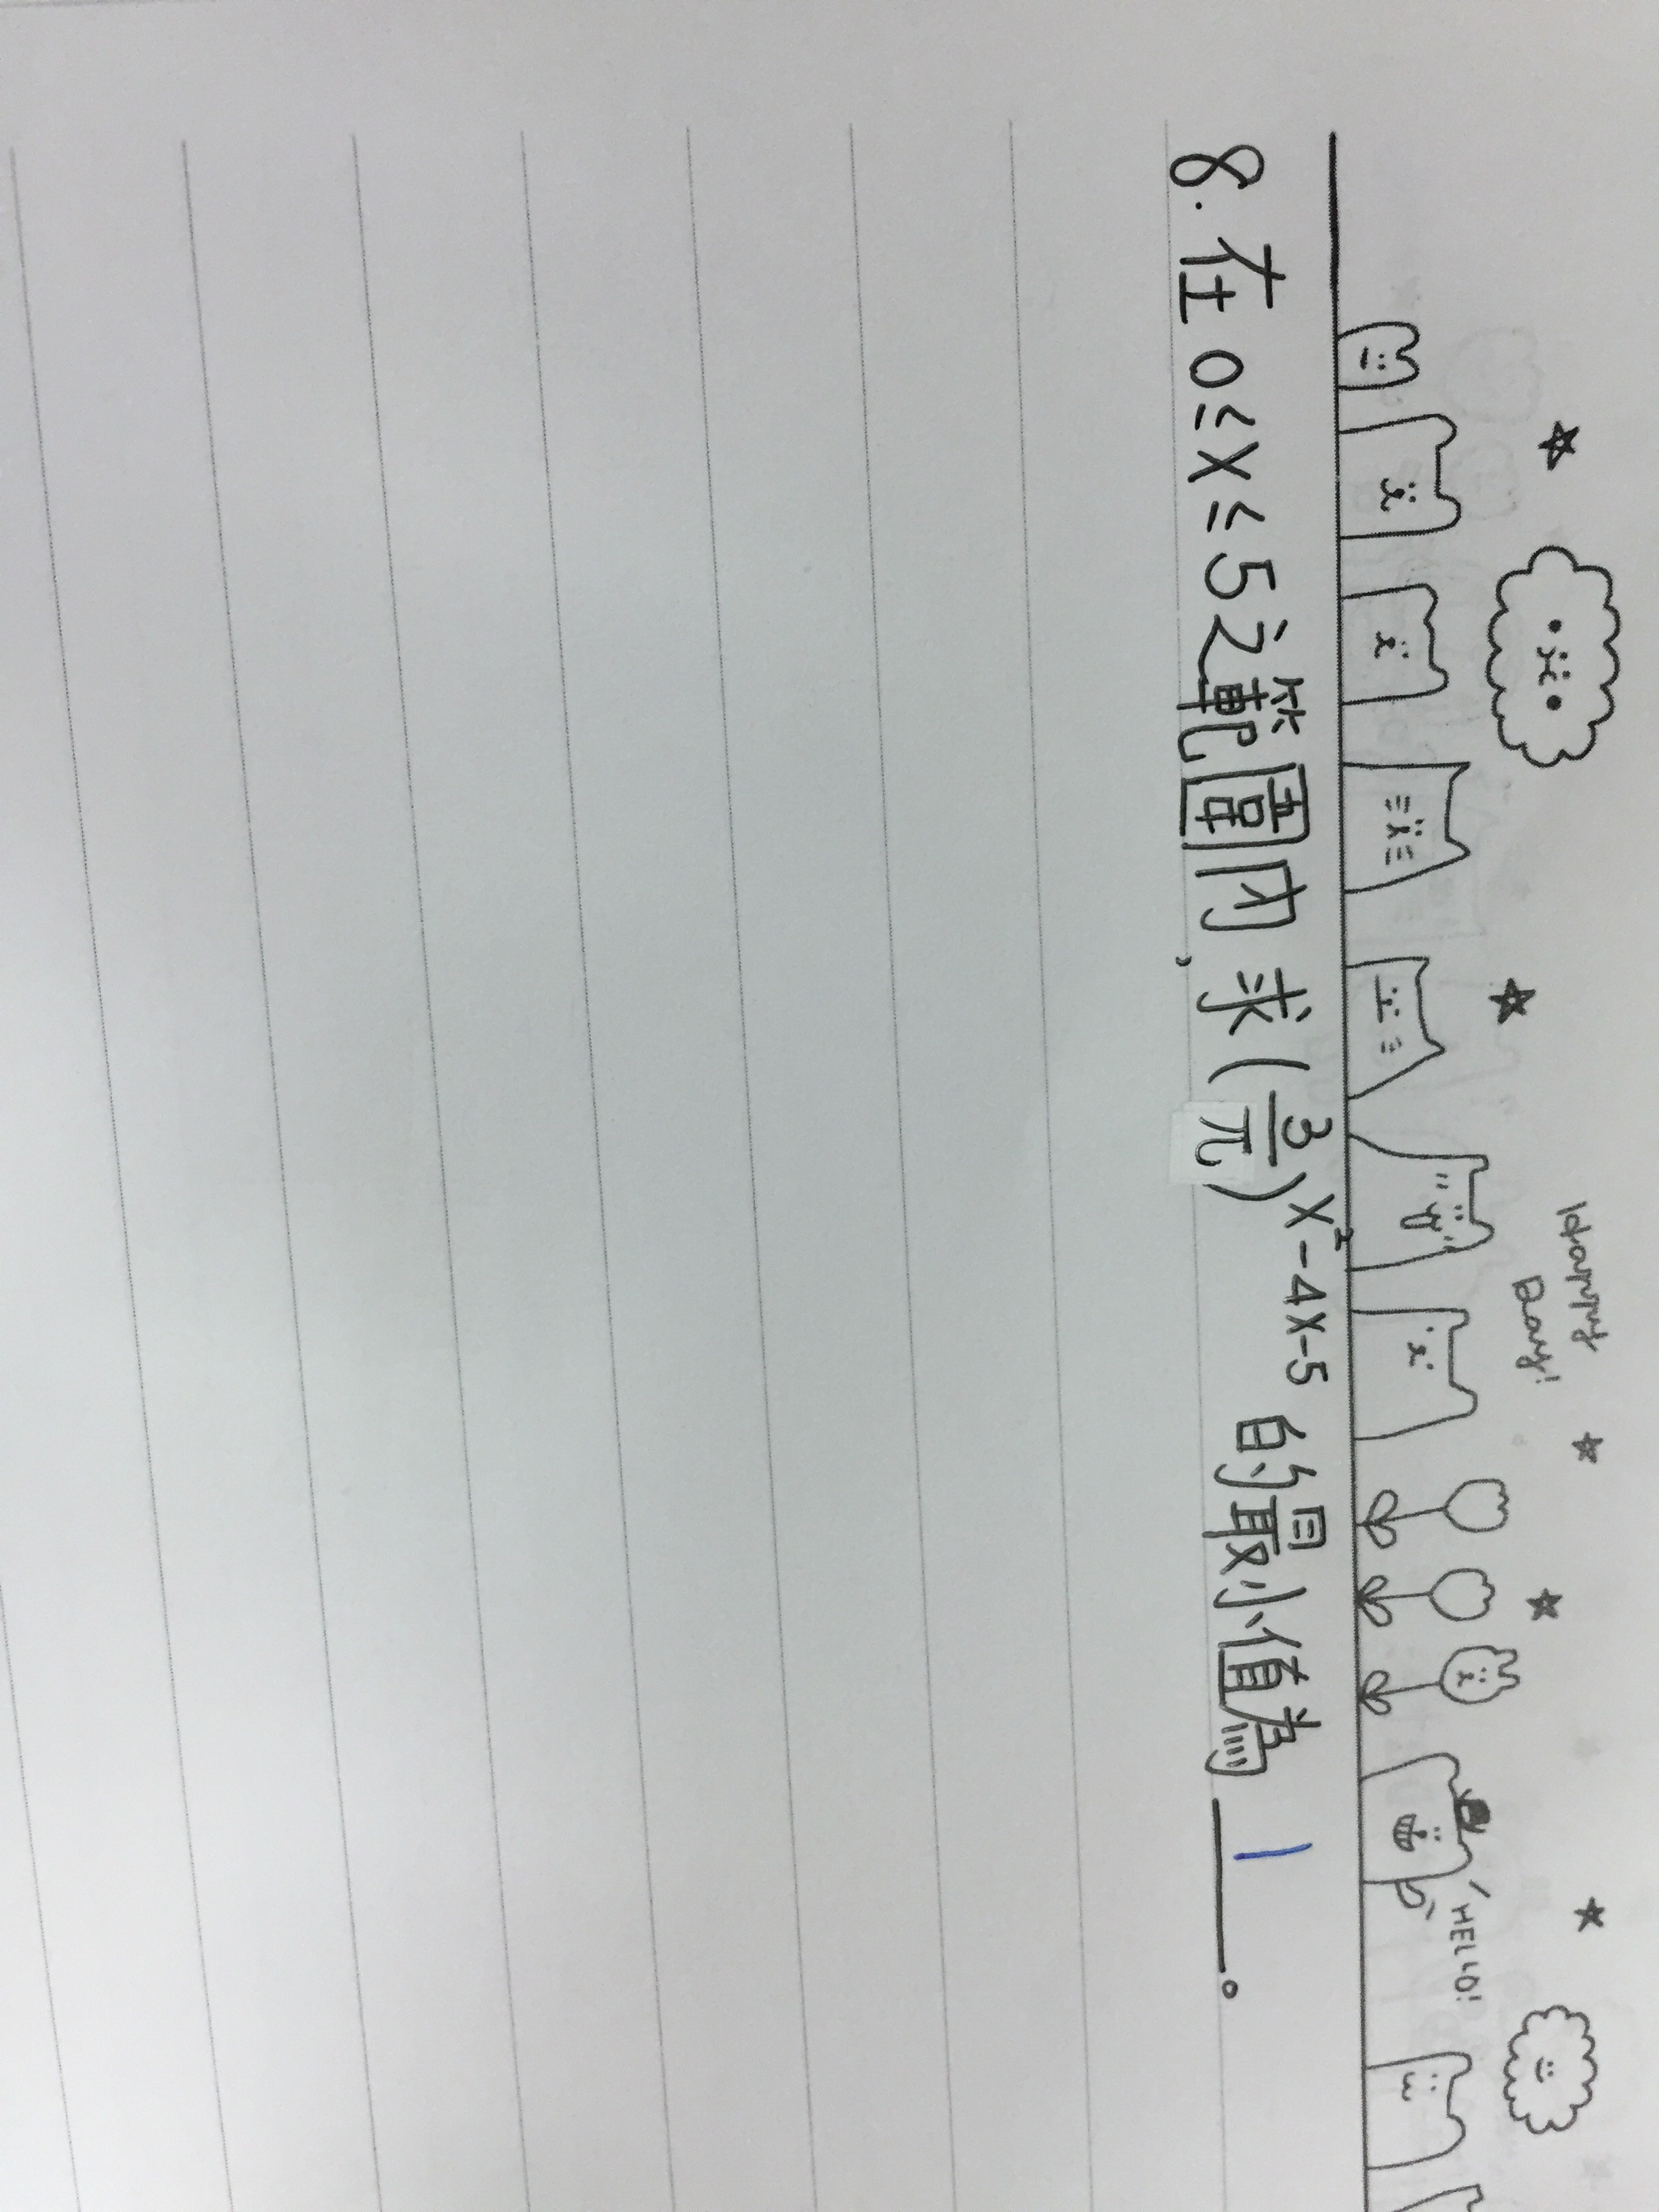 Happy
Day!
HELLO!
8. 在 0≤x≤5之範圍內, 求(3/π)^x²-4x-5 的最小值為 1 。